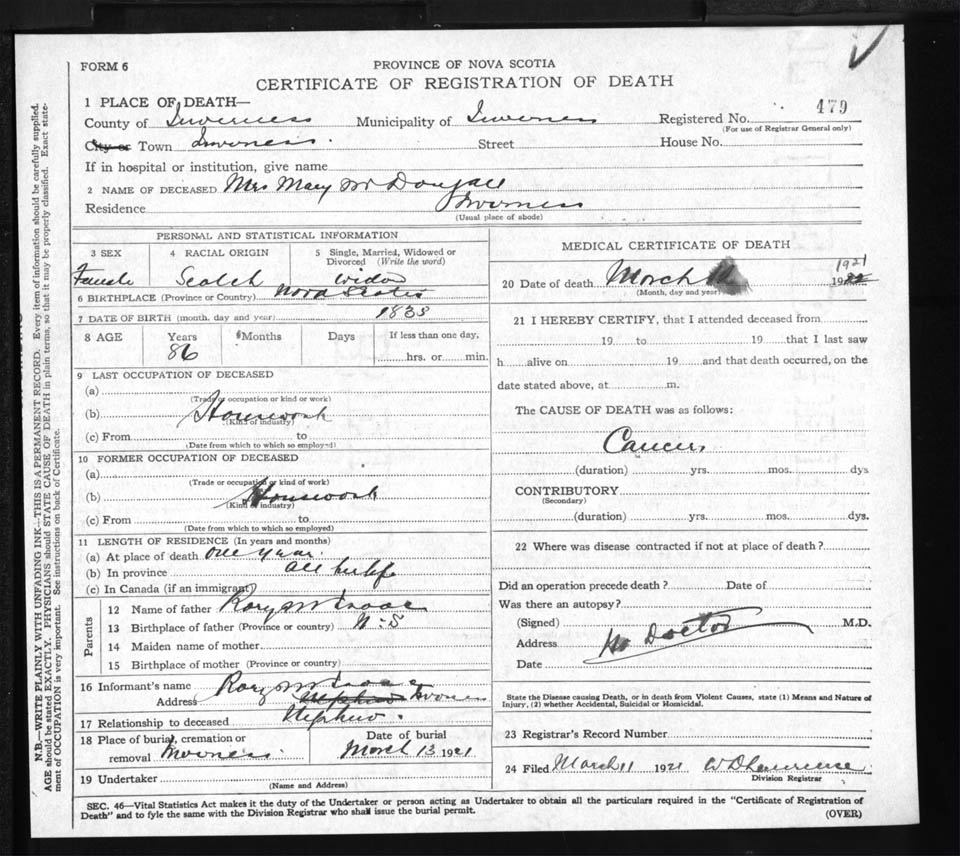 FORM 6
PROVINCE OF NOVA SCOTIA
CERTIFICATE OF REGISTRATION OF DEATH
1 PLACE OF DEATH—
479
County of Inverness Municipality of Inverness Registered No.
(For use of Registrar General only)
City or Town Inverness. Street House No.
If in hospital or institution, give name
2 NAME OF DECEASED Mrs Mary McDougall
Residence Inverness
(Usual place of abode)
PERSONAL AND STATISTICAL INFORMATION
3 SEX 4 RACIAL ORIGIN 5 Single, Married, Widowed or
Divorced (Write the word)
Female Scotch Widow
6 BIRTHPLACE (Province or Country) Nova Scotia
7 DATE OF BIRTH (month, day and year) 1835
8 AGE Years Months Days If less than one day,
86 hrs. or min.
9 LAST OCCUPATION OF DECEASED
(a)
(Trade or occupation or kind or work)
(b) Housework
(Kind of industry)
(c) From to
(Date from which to which so employed)
10 FORMER OCCUPATION OF DECEASED
(a)
(Trade or occupation or kind of work)
(b) Housework
(Kind of industry)
(c) From to
(Date from which to which so employed)
11 LENGTH OF RESIDENCE (In years and months)
(a) At place of death one year.
(b) In province all her life
(c) In Canada (if an immigrant)
Parents
12 Name of father Rory McIsaac
13 Birthplace of father (Province or country) N-S
14 Maiden name of mother
15 Birthplace of mother (Province or country)
16 Informant's name Rory McIsaac
Address Nephew Inverness
17 Relationship to deceased Nephew.
18 Place of burial, cremation or Date of burial
removal Inverness. March 13 1921
19 Undertaker
(Name and Address)
MEDICAL CERTIFICATE OF DEATH
1921
20 Date of death March 1922
(Month, day and year)
21 I HEREBY CERTIFY, that I attended deceased from
19 to 19 that I last saw
h alive on 19 and that death occurred, on the
date stated above, at m.
The CAUSE OF DEATH was as follows:
Cancer.
(duration) yrs. mos. dys
CONTRIBUTORY
(Secondary)
(duration) yrs. mos. dys.
22 Where was disease contracted if not at place of death?
Did an operation precede death? Date of
Was there an autopsy?
(Signed) M.D.
Address No Doctor
Date
State the Disease causing Death, or in death from Violent Causes, state (1) Means and Nature of
Injury, (2) whether Accidental, Suicidal or Homicidal.
23 Registrar's Record Number
24 Filed March 11 1921 W D Lawrence
Division Registrar
SEC. 46—Vital Statistics Act makes it the duty of the Undertaker or person acting as Undertaker to obtain all the particulars required in the "Certificate of Registration of
Death" and to fyle the same with the Division Registrar who shall issue the burial permit.
(OVER)
N.B.—WRITE PLAINLY WITH UNFADING INK—THIS IS A PERMANENT RECORD. Every item of information should be carefully supplied.
AGE should be stated EXACTLY. PHYSICIANS should STATE CAUSE OF DEATH in plain terms, so that it may be properly classified. Exact state-
ment of OCCUPATION is very important. See instructions on back of Certificate.